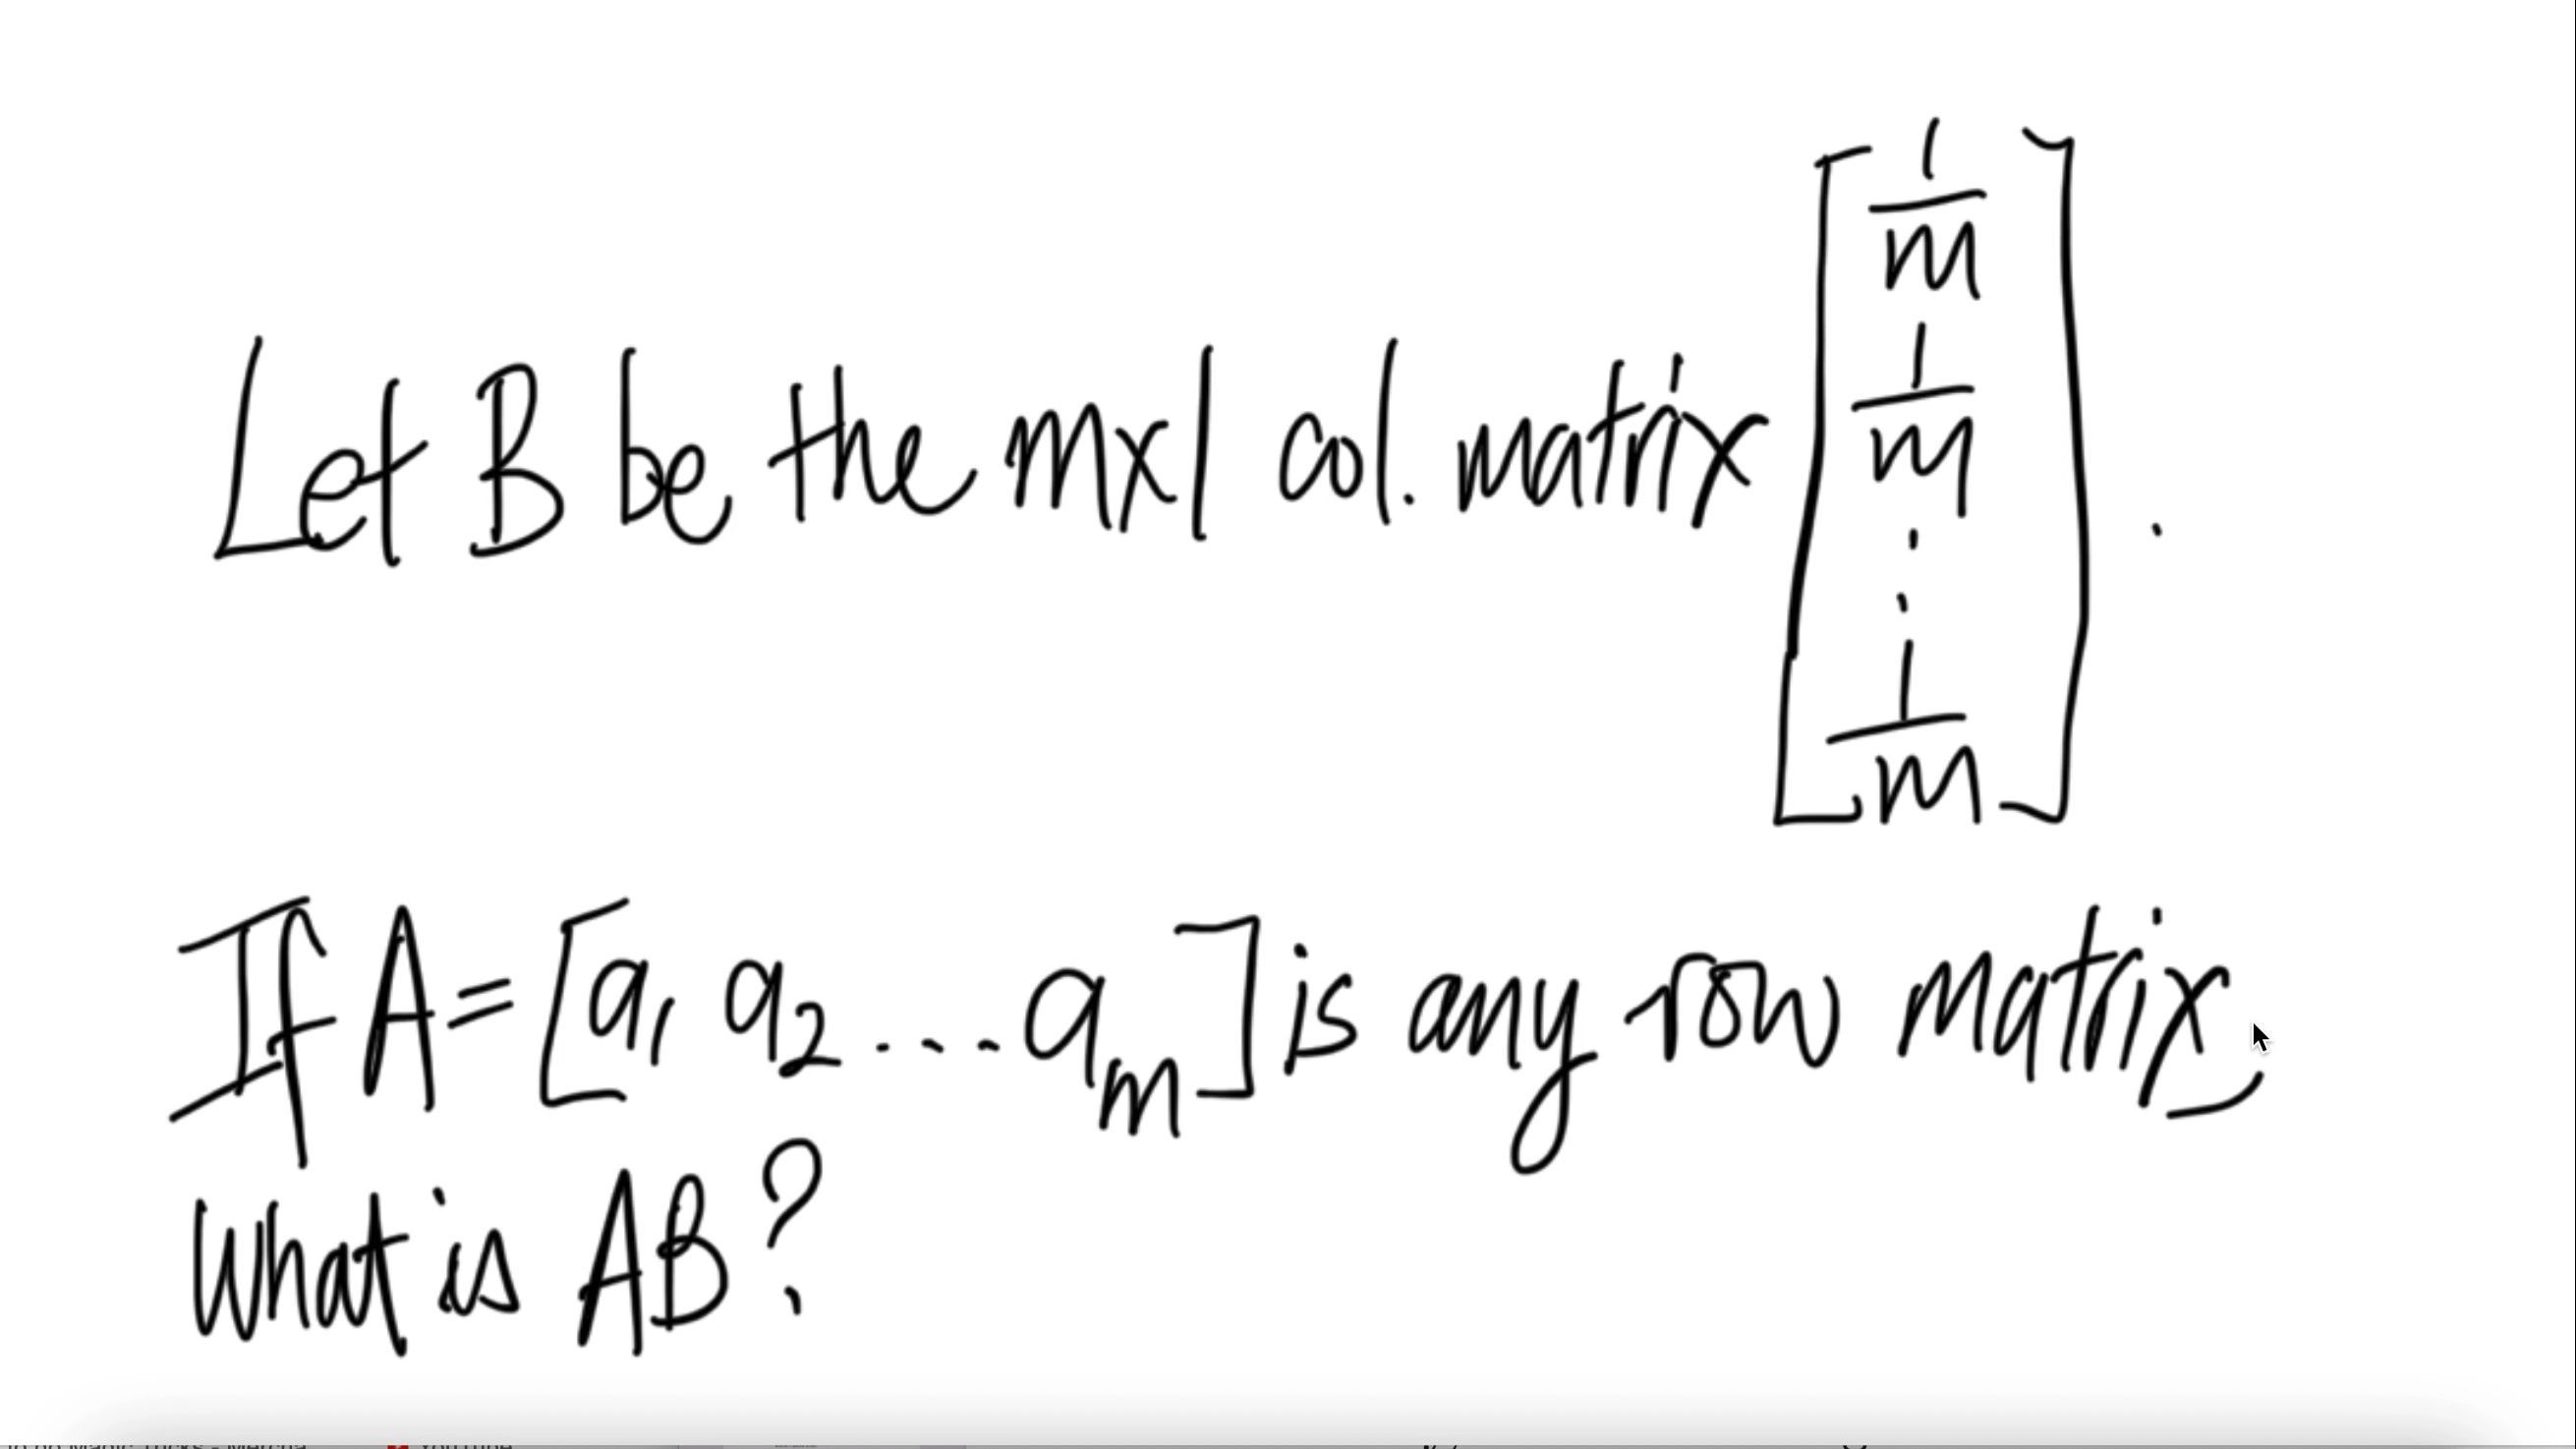 Let B be the mx1 col. matrix [ 1/m 1/m : 1/m ] .
If A = [a1 a2 .... am] is any row matrix,
what is AB?